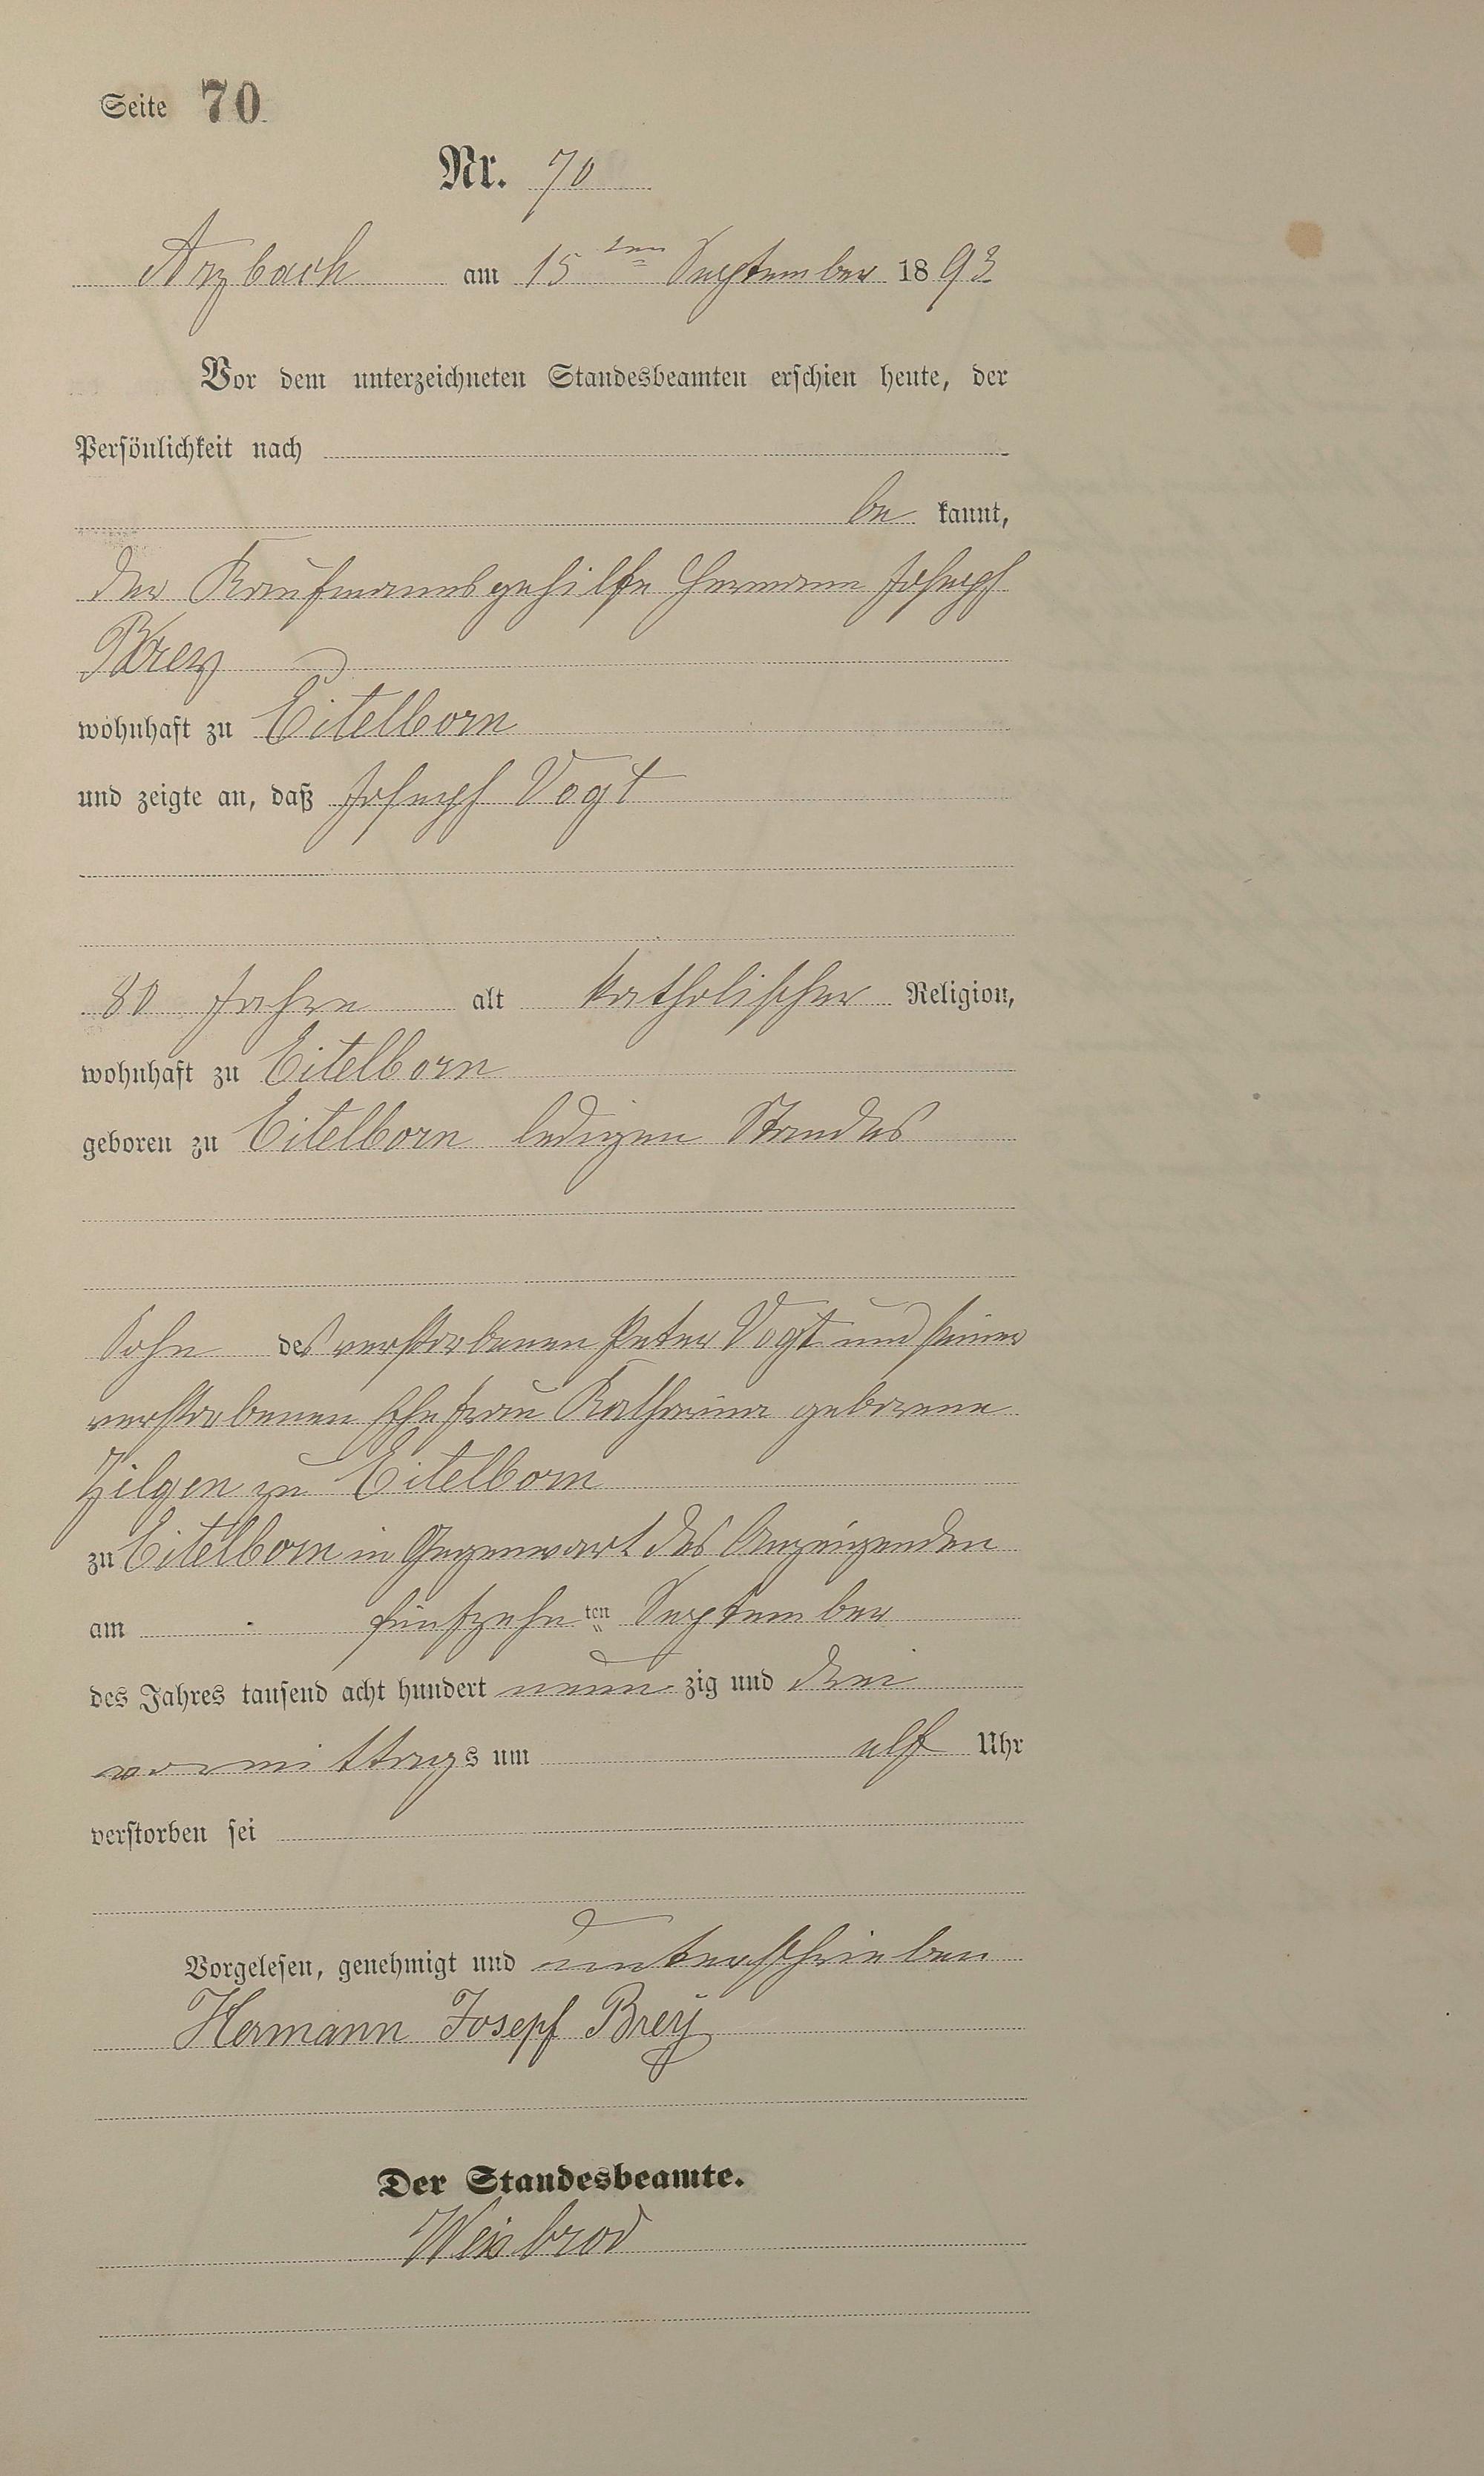 Seite 70
Nr. 70
Arzbach am 15 ten September 1893
Vor dem unterzeichneten Standesbeamten erschien heute, der
Persönlichkeit nach
be kannt,
der Kaufmannsgehilfe Hermann Joseph
Brey
wohnhaft zu Eitelborn
und zeigte an, daß Joseph Vogt
80 Jahre alt katholischer Religion,
wohnhaft zu Eitelborn
geboren zu Eitelborn ledigen Standes
Sohn des verstorbenen Peter Vogt und seiner
verstorbenen Ehefrau Katharina geborene
Zilgen zu Eitelborn
zu Eitelborn in Gegenwart des Anzeigenden
am fünfzehn ten September
des Jahres tausend acht hundert neun zig und drei
vormittags um elf Uhr
verstorben sei
Vorgelesen, genehmigt und unterschrieben
Hermann Josepf Breÿ
Der Standesbeamte.
Weisbrod